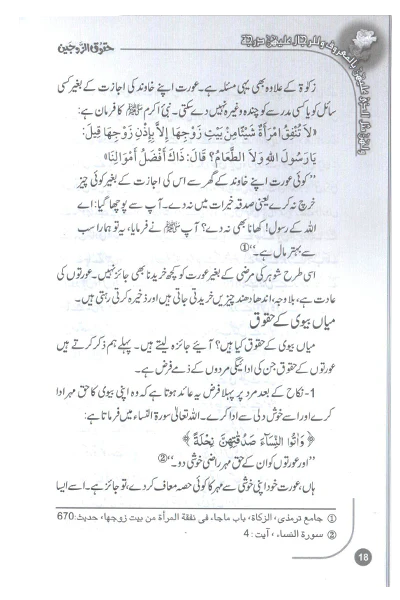 حقوق الزوجین
وللرجال علیہن درجۃ
زکوٰۃ کے علاوہ بھی یہی مسئلہ ہے۔ عورت اپنے خاوند کی اجازت کے بغیر کسی
سائل کو یا کسی مدرسے کو چندہ وغیرہ نہیں دے سکتی۔ نبیٔ اکرم ﷺ کا فرمان ہے:
«لَا تُنْفِقُ امْرَأَةٌ شَيْئًا مِنْ بَيْتِ زَوْجِهَا إِلَّا بِإِذْنِ زَوْجِهَا قِيلَ:
يَارَسُولَ اللهِ وَلَا الطَّعَامُ؟ قَالَ: ذَاكَ أَفْضَلُ أَمْوَالِنَا»
”کوئی عورت اپنے خاوند کے گھر سے اس کی اجازت کے بغیر کوئی چیز
خرچ نہ کرے یعنی صدقہ خیرات میں نہ دے۔ آپ سے پوچھا گیا: اے
اللہ کے رسول! کھانا بھی نہ دے؟ آپ ﷺ نے فرمایا، یہ تو ہمارا سب
سے بہتر مال ہے۔“①
اسی طرح شوہر کی مرضی کے بغیر عورت کو کچھ خریدنا بھی جائز نہیں۔ عورتوں کی
عادت ہے، بلا وجہ، اندھا دھند چیزیں خریدتی جاتی ہیں اور ذخیرہ کرتی رہتی ہیں۔
میاں بیوی کے حقوق
میاں بیوی کے حقوق کیا ہیں؟ آیئے جائزہ لیتے ہیں۔ پہلے ہم ذکر کرتے ہیں
عورتوں کے حقوق جن کی ادائیگی مردوں کے ذمے فرض ہے۔
1- نکاح کے بعد مرد پر پہلا فرض یہ عائد ہوتا ہے کہ وہ اپنی بیوی کا حق مہر ادا
کرے اور اسے خوش دلی سے ادا کرے۔ اللہ تعالیٰ سورۃ النساء میں فرماتا ہے:
﴿ وَاٰتُوا النِّسَآءَ صَدُقٰتِهِنَّ نِحْلَةً ﴾
”اور عورتوں کو ان کے حق مہر راضی خوشی دو۔“②
ہاں، عورت خود اپنی خوشی سے مہر کا کوئی حصہ معاف کر دے، تو جائز ہے۔ اسے ایسا
① جامع ترمذی، الزکاۃ، باب ماجاء فی نفقۃ المرأۃ من بیت زوجھا، حدیث:670
② سورۃ النساء، آیت: 4
18